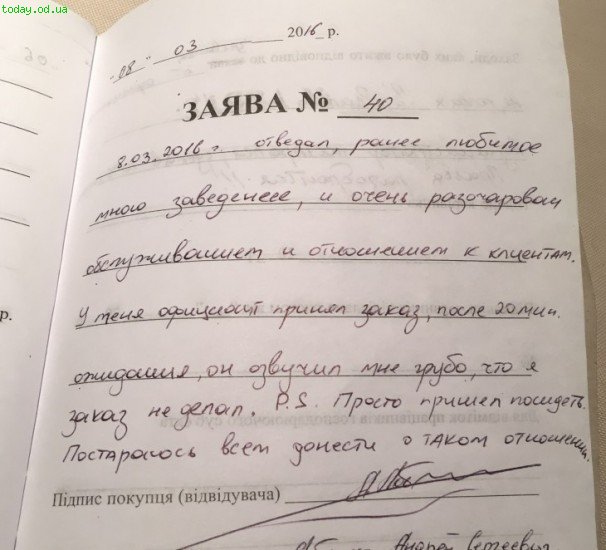 today.od.ua
"08" 03 2016 р.
ЗАЯВА № 40
8.03.2016 г отведал, ранее любимое
мною заведенеее, и очень разочарован
обслуживанием и отношением к клиентам.
У меня официант принял заказ, после 20 мин.
ожидания, он озвучил мне грубо, что я
заказ не делал. P.S. Просто пришел посидеть.
Постараюсь всем донести о таком отношении.
Підпис покупця (відвідувача)
Андрей Сергеевич
р.